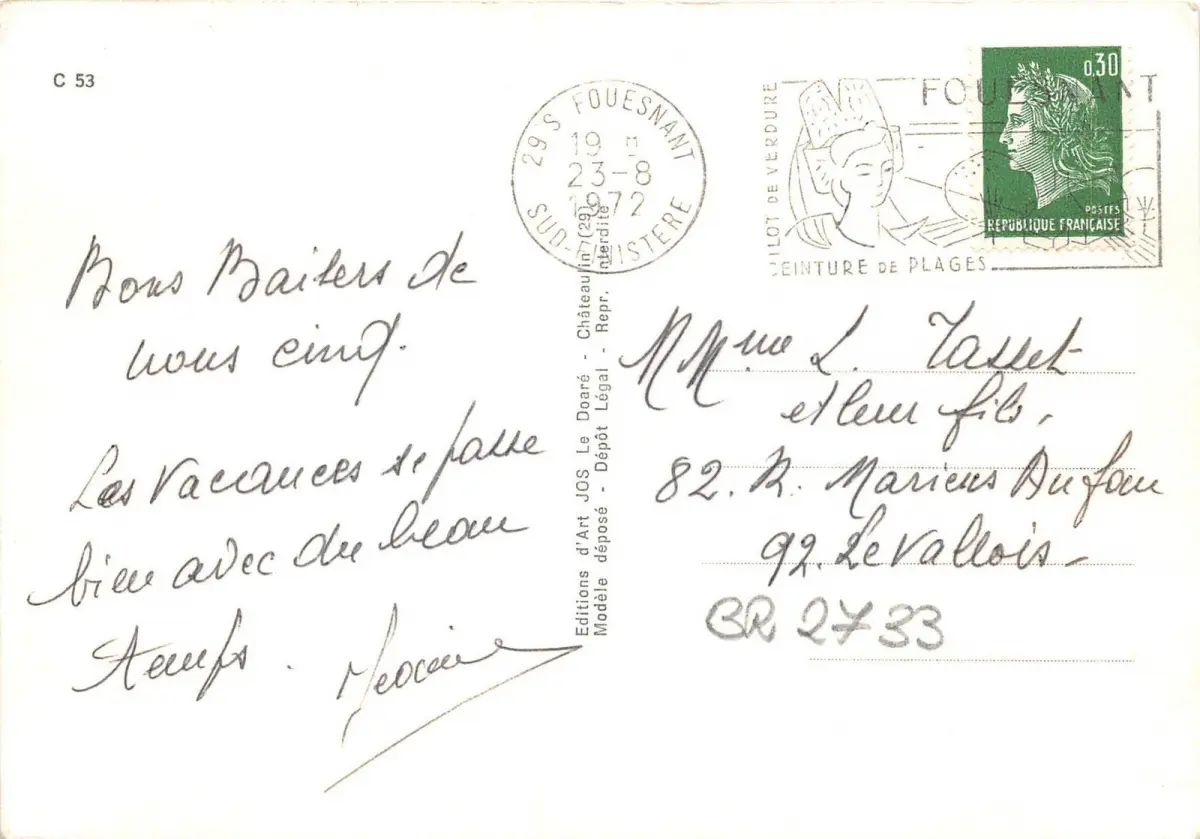 C 53
29 S FOUESNANT
19 H
23-8
1972
SUD-FINISTERE
FOUESNANT
ILOT DE VERDURE
CEINTURE DE PLAGES
0,30
POSTES
REPUBLIQUE FRANÇAISE
Bons Baisers de
nous cinq.
Les vacances se passe
bien avec du beau
temps.
Editions d'Art JOS Le Doaré - Châteaulin (29)
Modèle déposé - Dépôt Légal - Repr. Interdite
M Mme L. Tasset
et leur fils.
82. R. Marius Aufan
92. Levallois -
BR 2733